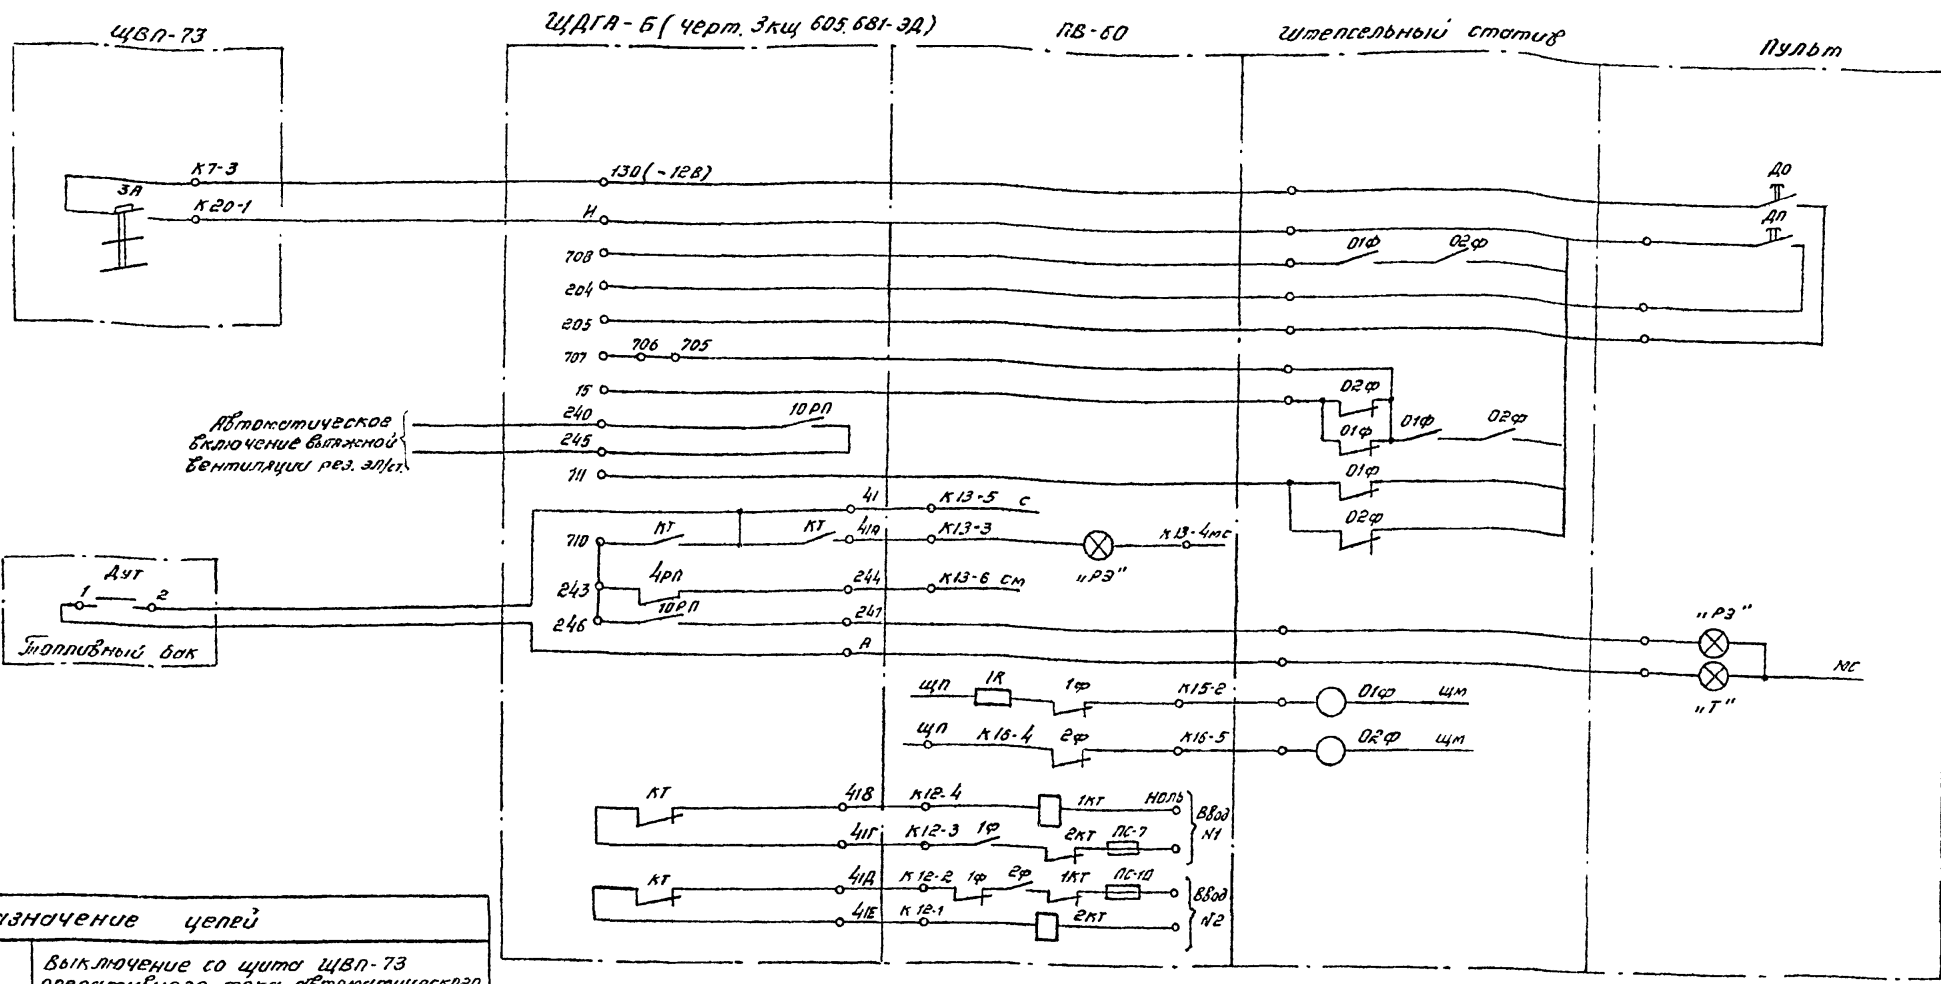 ЩВП-73
ЩДГА-Б ( черт. 3кщ 605.681-ЭД)
ПВ-60
Штепсельный статив
Пульт
К7-3
3А
К20-1
130(-12В)
И
708
204
205
707
706
705
15
240
245
711
10РП
Автоматическое
включение вытяжной
вентиляции рез. эл/ст.
ДО
ДП
01ф
02ф
02ф
01ф
01ф
02ф
01ф
02ф
41
К13-5
С
710
КТ
КТ
41А
К13-3
К13-4мс
"РЭ"
243
4РП
244
К13-6 см
246
10РП
А
Дут
1
2
Топливный бак
"РЭ"
"Т"
МС
ЩП
1R
1ф
К15-2
01ф
ЩМ
ЩП
К16-4
2ф
К16-5
02ф
ЩМ
КТ
41В
К12-4
1КТ
Ноль
41Г
К12-3
1ф
2КТ
ПС-7
Ввод
№1
КТ
41Д
К12-2
1ф
2ф
1КТ
ПС-10
41Е
К12-1
2КТ
Ввод
№2
азначение цепей
Выключение со щита ЩВП-73